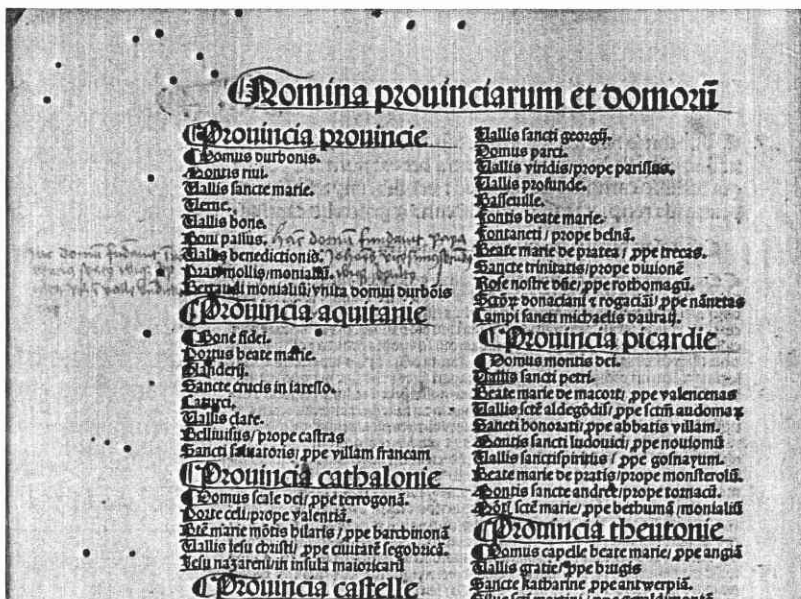 Nomina prouinciarum et domorū
Prouincia prouincie
Domus durbonis.
Montis riui.
Uallis sancte marie.
Uerne.
Uallis bone.
Boni passus. hāc domū fundauit papa
Uallis benedictionis. Johēs
Prati mollis/monialiū.
Bertaudi monialiū/vnita domui durbōis
Prouincia aquitanie
Bone fidei.
Portus beate marie.
Glanderij.
Sancte crucis in iaresso.
Caturci.
Uallis clare.
Belliuisus/prope castras
Sancti saluatoris/ ꝓpe villam francam
Prouincia cathalonie
Domus scale dei/ ꝓpe terrogonā.
Porte celi/prope valentiā.
Btē marie mōtis hilaris/ ꝓpe barchinonā
Uallis iesu christi/ ꝓpe ciuitatē segobricā.
Iesu nazareni/in insula maioricarū
Prouincia castelle
Uallis sancti georgij.
Domus parci.
Uallis viridis/prope parisius.
Uallis profunde.
Basseuille.
Fontis beate marie.
Fontaneti/prope belnā.
Beate marie de pratea/ ꝓpe trecas.
Sancte trinitatis/prope diuionē
Rose nostre dñe/ ꝓpe rothomagū.
donaciani ⁊ rogaciāi/ ꝓpe nānetas
Campi sancti michaelis vauraij.
Prouincia picardie
Domus montis dei.
Uallis sancti petri.
Beate marie de macort/ ꝓpe valencenas
Uallis sctē aldegōdis/ ꝓpe sctm audomaꝝ
Sancti honorati/ ꝓpe abbatis villam.
Montis sancti ludouici/ ꝓpe nouiomū
Uallis sanctispiritus/ ꝓpe gosnayum.
Beate marie de pratis/prope monsterolū.
Montis sancte andree/prope tornacū.
sctē marie/ ꝓpe bethunā/monialiū
Prouincia theutonie
Domus capelle beate marie/ ꝓpe angiā
Uallis gratie/ ꝓpe brugis
Sancte katharine ꝓpe antwerpiā.